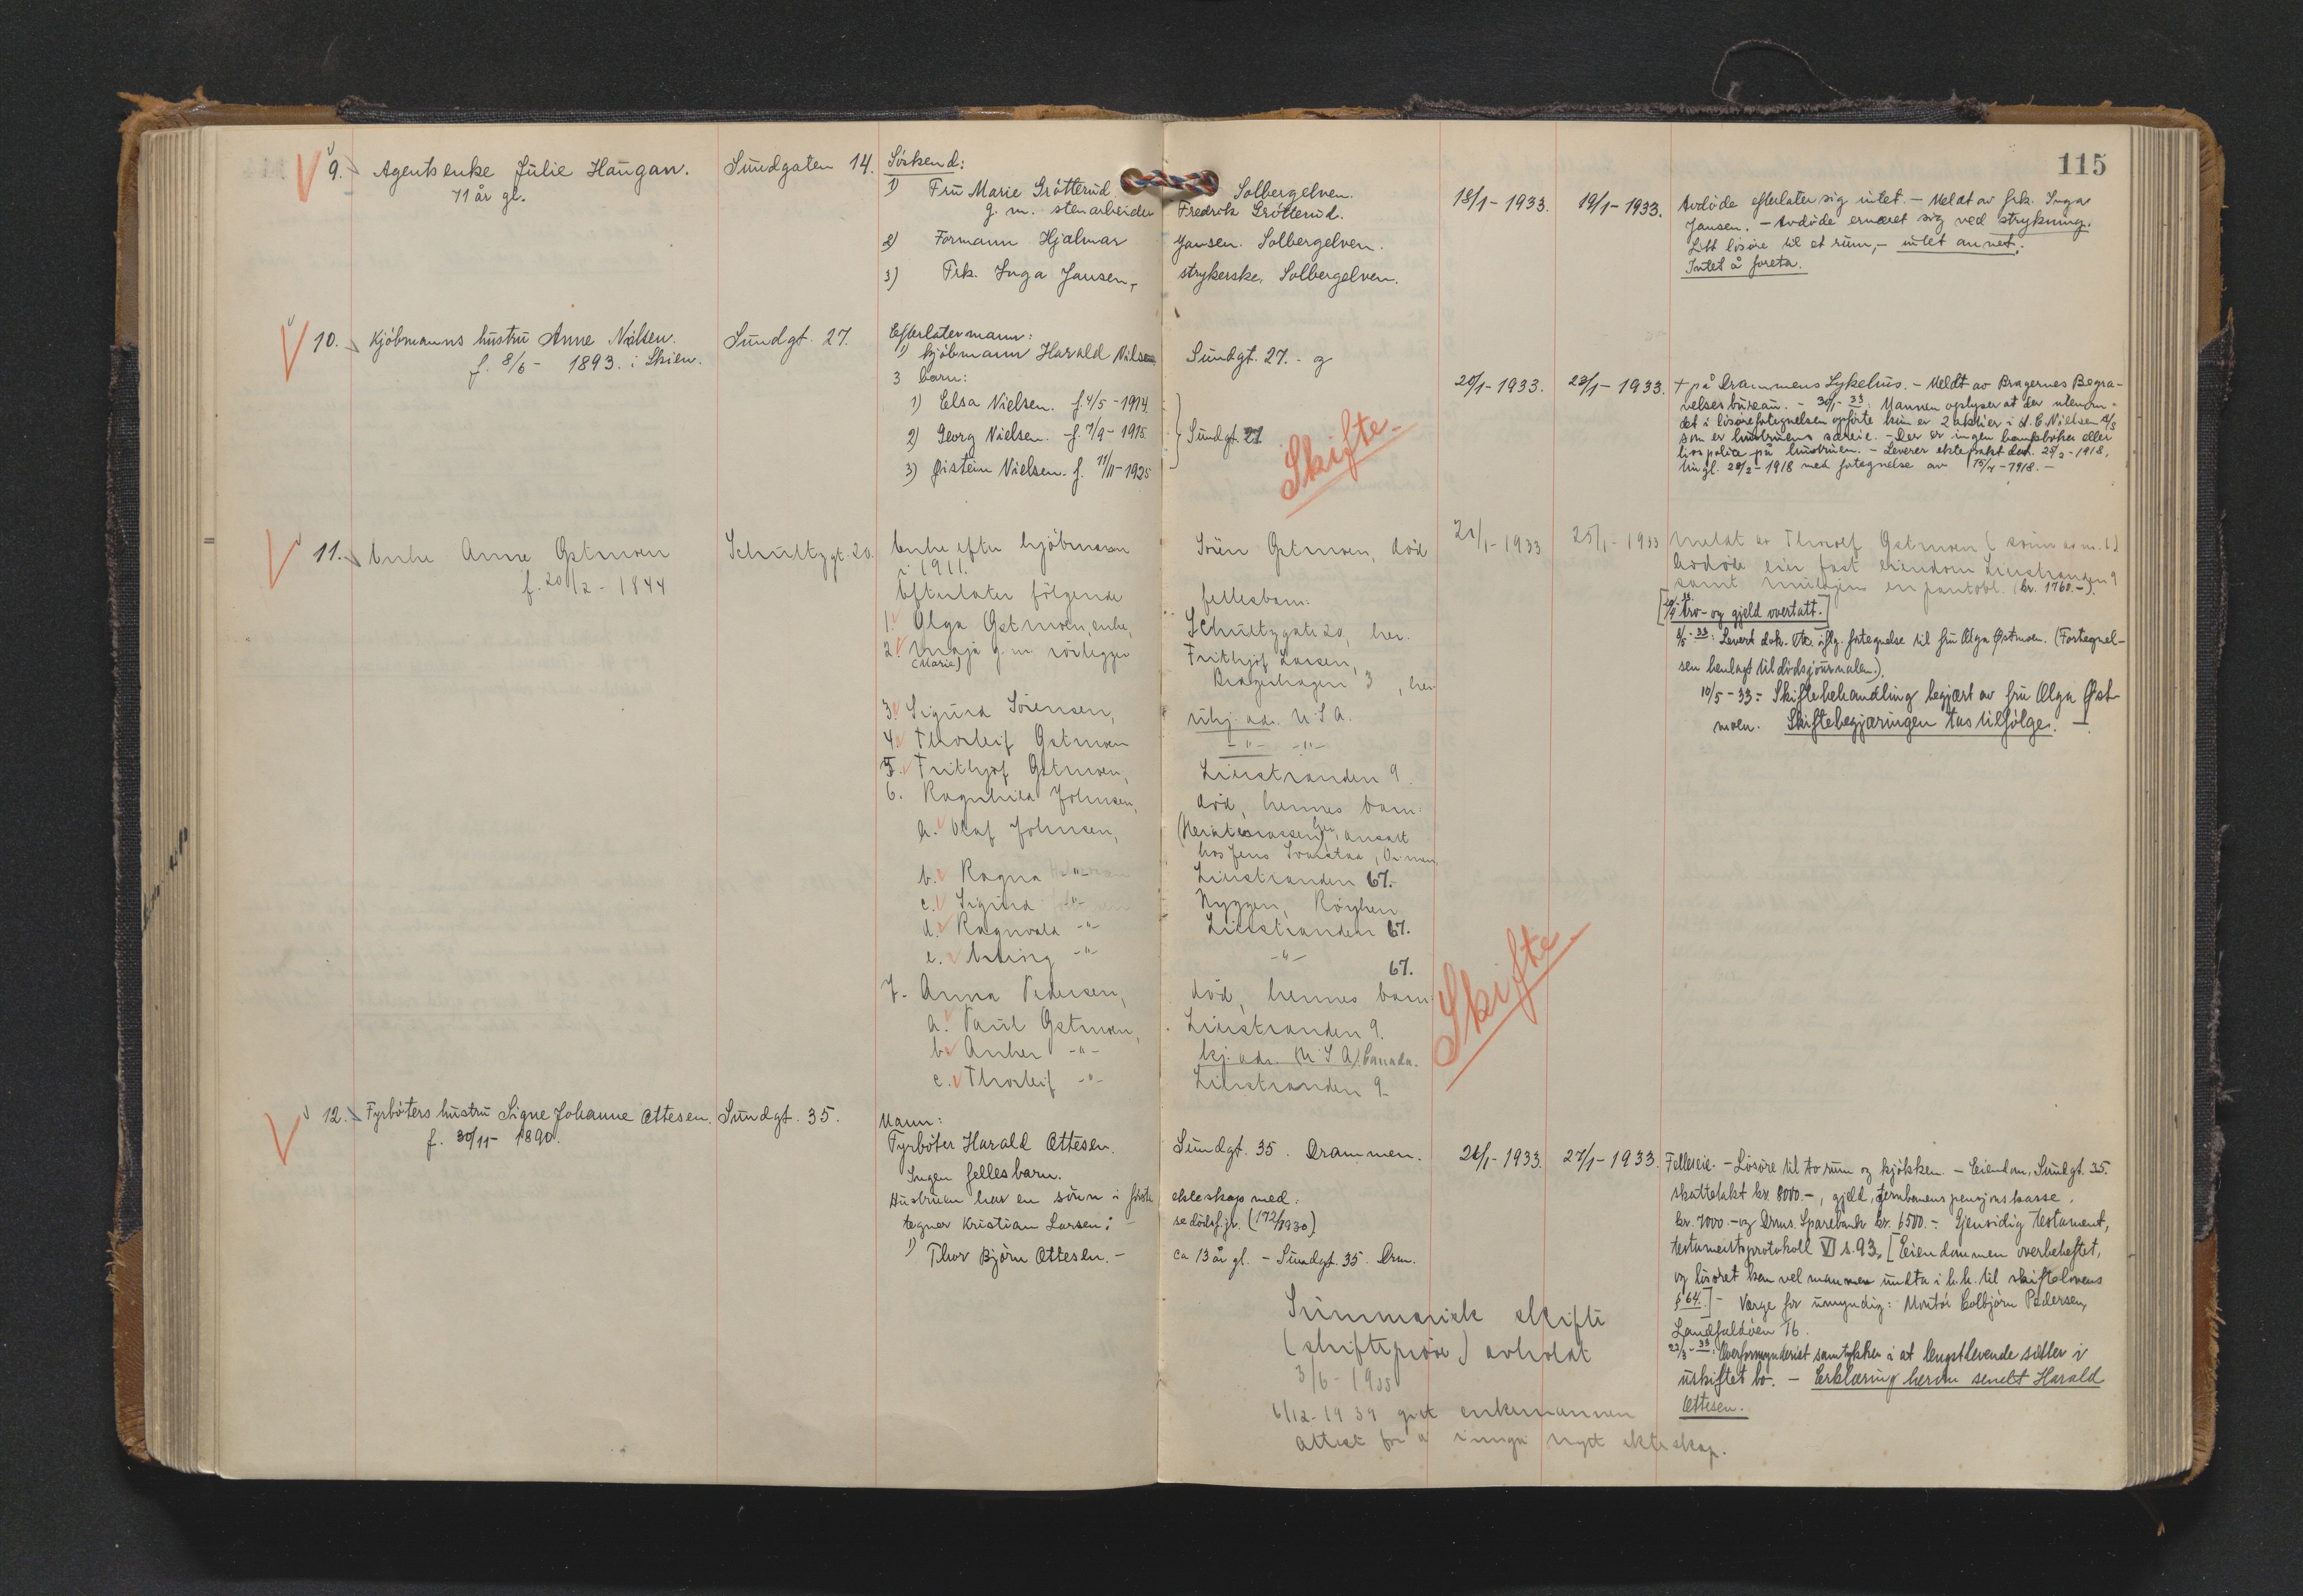 115
9. Agents enke Julie Haugan. Sundgaten 14. Søskend:
71 år gl.
1) Fru Marie Grötterud Solbergelven.
g. m. stenarbeider Fredrik Grötterud.
2) Formann Hjalmar Jansen. Solbergelven.
3) Frk. Inga Jansen, strykerske, Solbergelven.
18/1-1933. 19/1-1933.
Avdöde efterlater sig intet. - Meldt av frk. Inga
Jansen. - Avdöde ernæret sig ved strykning.
Litt lösöre til et rum, - intet annet.
Intet å foreta.
10. Kjöbmanns hustru Anne Nilsen. Sundgt. 27.
f. 8/6 - 1893. i Skien.
Efterlater mann:
1) Kjöbmann Harald Nilsen Sundgt. 27. - og
3 barn:
1) Elsa Nielsen. f. 4/5 - 1914.
2) Georg Nielsen. f. 7/9 - 1915 Sundgt. 27
3) Øistein Nielsen. f. 11/11 - 1925
Skifte.
20/1-1933. 23/1-1933.
+ på Drammens Sykehus. - Meldt av Bragernes Begra-
velsesbureau. - 30/1-33: Mannen oplyser at der utenom
det i lösörefortegnelsen opförte kun er 2 aktier i A. C. Nielsen A/S
som er hustruens særeie. - Der er ingen bankböker eller
livspolice på hustruen. - Leverer ektepakt dat. 25/2-1918,
tingl. 28/2-1918 med fortegnelse av 15/4-1918. -
11. Enke Anne Østmoen Schultzgt. 20.
f. 20/2 - 1844
Enke efter kjöbmann Sören Østmoen, död
i 1911.
Efterlater fölgende fellesbarn:
1. Olga Østmoen, enke, Schultzgate 20, her.
2. Maja g. m. rörlegger Frithjof Larsen,
(Marie) Bragerhagen 3, her.
3. Sigurd Sörensen, ukj. adr. U.S.A.
4. Thorleif Østmoen -"- -"-
5. Frithjof Østmoen, Lierstranden 9.
6. Ragnhild Johnsen, död, hennes barn:
a. Olaf Johnsen, ansatt
hos Jens
b. Ragna -"- Lierstranden 67.
c. Sigurd -"- Nyggen, Röyken
d. Ragnvald -"- Lierstranden 67.
e. Erling -"- -"- 67.
7. Anna Pedersen, död, hennes barn:
a. Paul Østmoen, Lierstranden 9.
b. Anker -"- kj. adr. (U.S.A.) Canada.
c. Thorleif -"- Lierstranden 9.
Skifte.
21/1-1933 25/1-1933
Meldt av Thorolf Østmoen (sönn av nr. 1)
Avdöde eier fast eiendom Lierstranden 9
samt muligens en pantobl. (kr. 1760.-).
Arv- og gjeld overtatt.
8/5-33: Levert dok. etc. iflg. fortegnelse til fru Olga Østmoen. (Fortegnel-
sen henlagt til dödsjournalen.)
10/5-33: Skiftebehandling begjært av fru Olga Øst-
moen. Skiftebegjæringen tas tilfölge. -
12. Fyrböters hustru Signe Johanne Ottesen. Sundgt. 35.
f. 30/11 - 1890.
Mann:
Fyrböter Harald Ottesen. Sundgt. 35. Drammen.
Ingen fellesbarn.
Hustruen har en sönn i förste ekteskap med:
tegner Kristian Larsen: se dödsfjr. (172/1930)
1) Thor Björn Ottesen. - ca 13 år gl. - Sundgt. 35. Drm.
26/1-1933. 27/1-1933.
Felleseie. - Lösöre til to rum og kjökken. - Eiendom, Sundgt. 35.
skattetakt kr. 8000.-, gjeld, Jernbanens pensjonskasse,
kr. 7000.- og Drms. Sparebank kr. 6500.- Gjensidig testament,
testamentsprotokoll VI s. 93. [Eiendommen overbeheftet,
og lösöret kan vel mannen undta i h. h. til skiftelovens
§ 64.] - Verge for umyndig: Montör Colbjörn Pedersen,
Landfalløen 76.
23/3-33: Overformynderiet samtykker i at lengstlevende sitter i
uskiftet bo. - Erklæring herom sendt Harald
Ottesen.
Summarisk skifte
(skifteprøve) avholdt
3/6-1935
6/12-1939 gitt enkemannen
attest for å inngå nytt ekteskap.